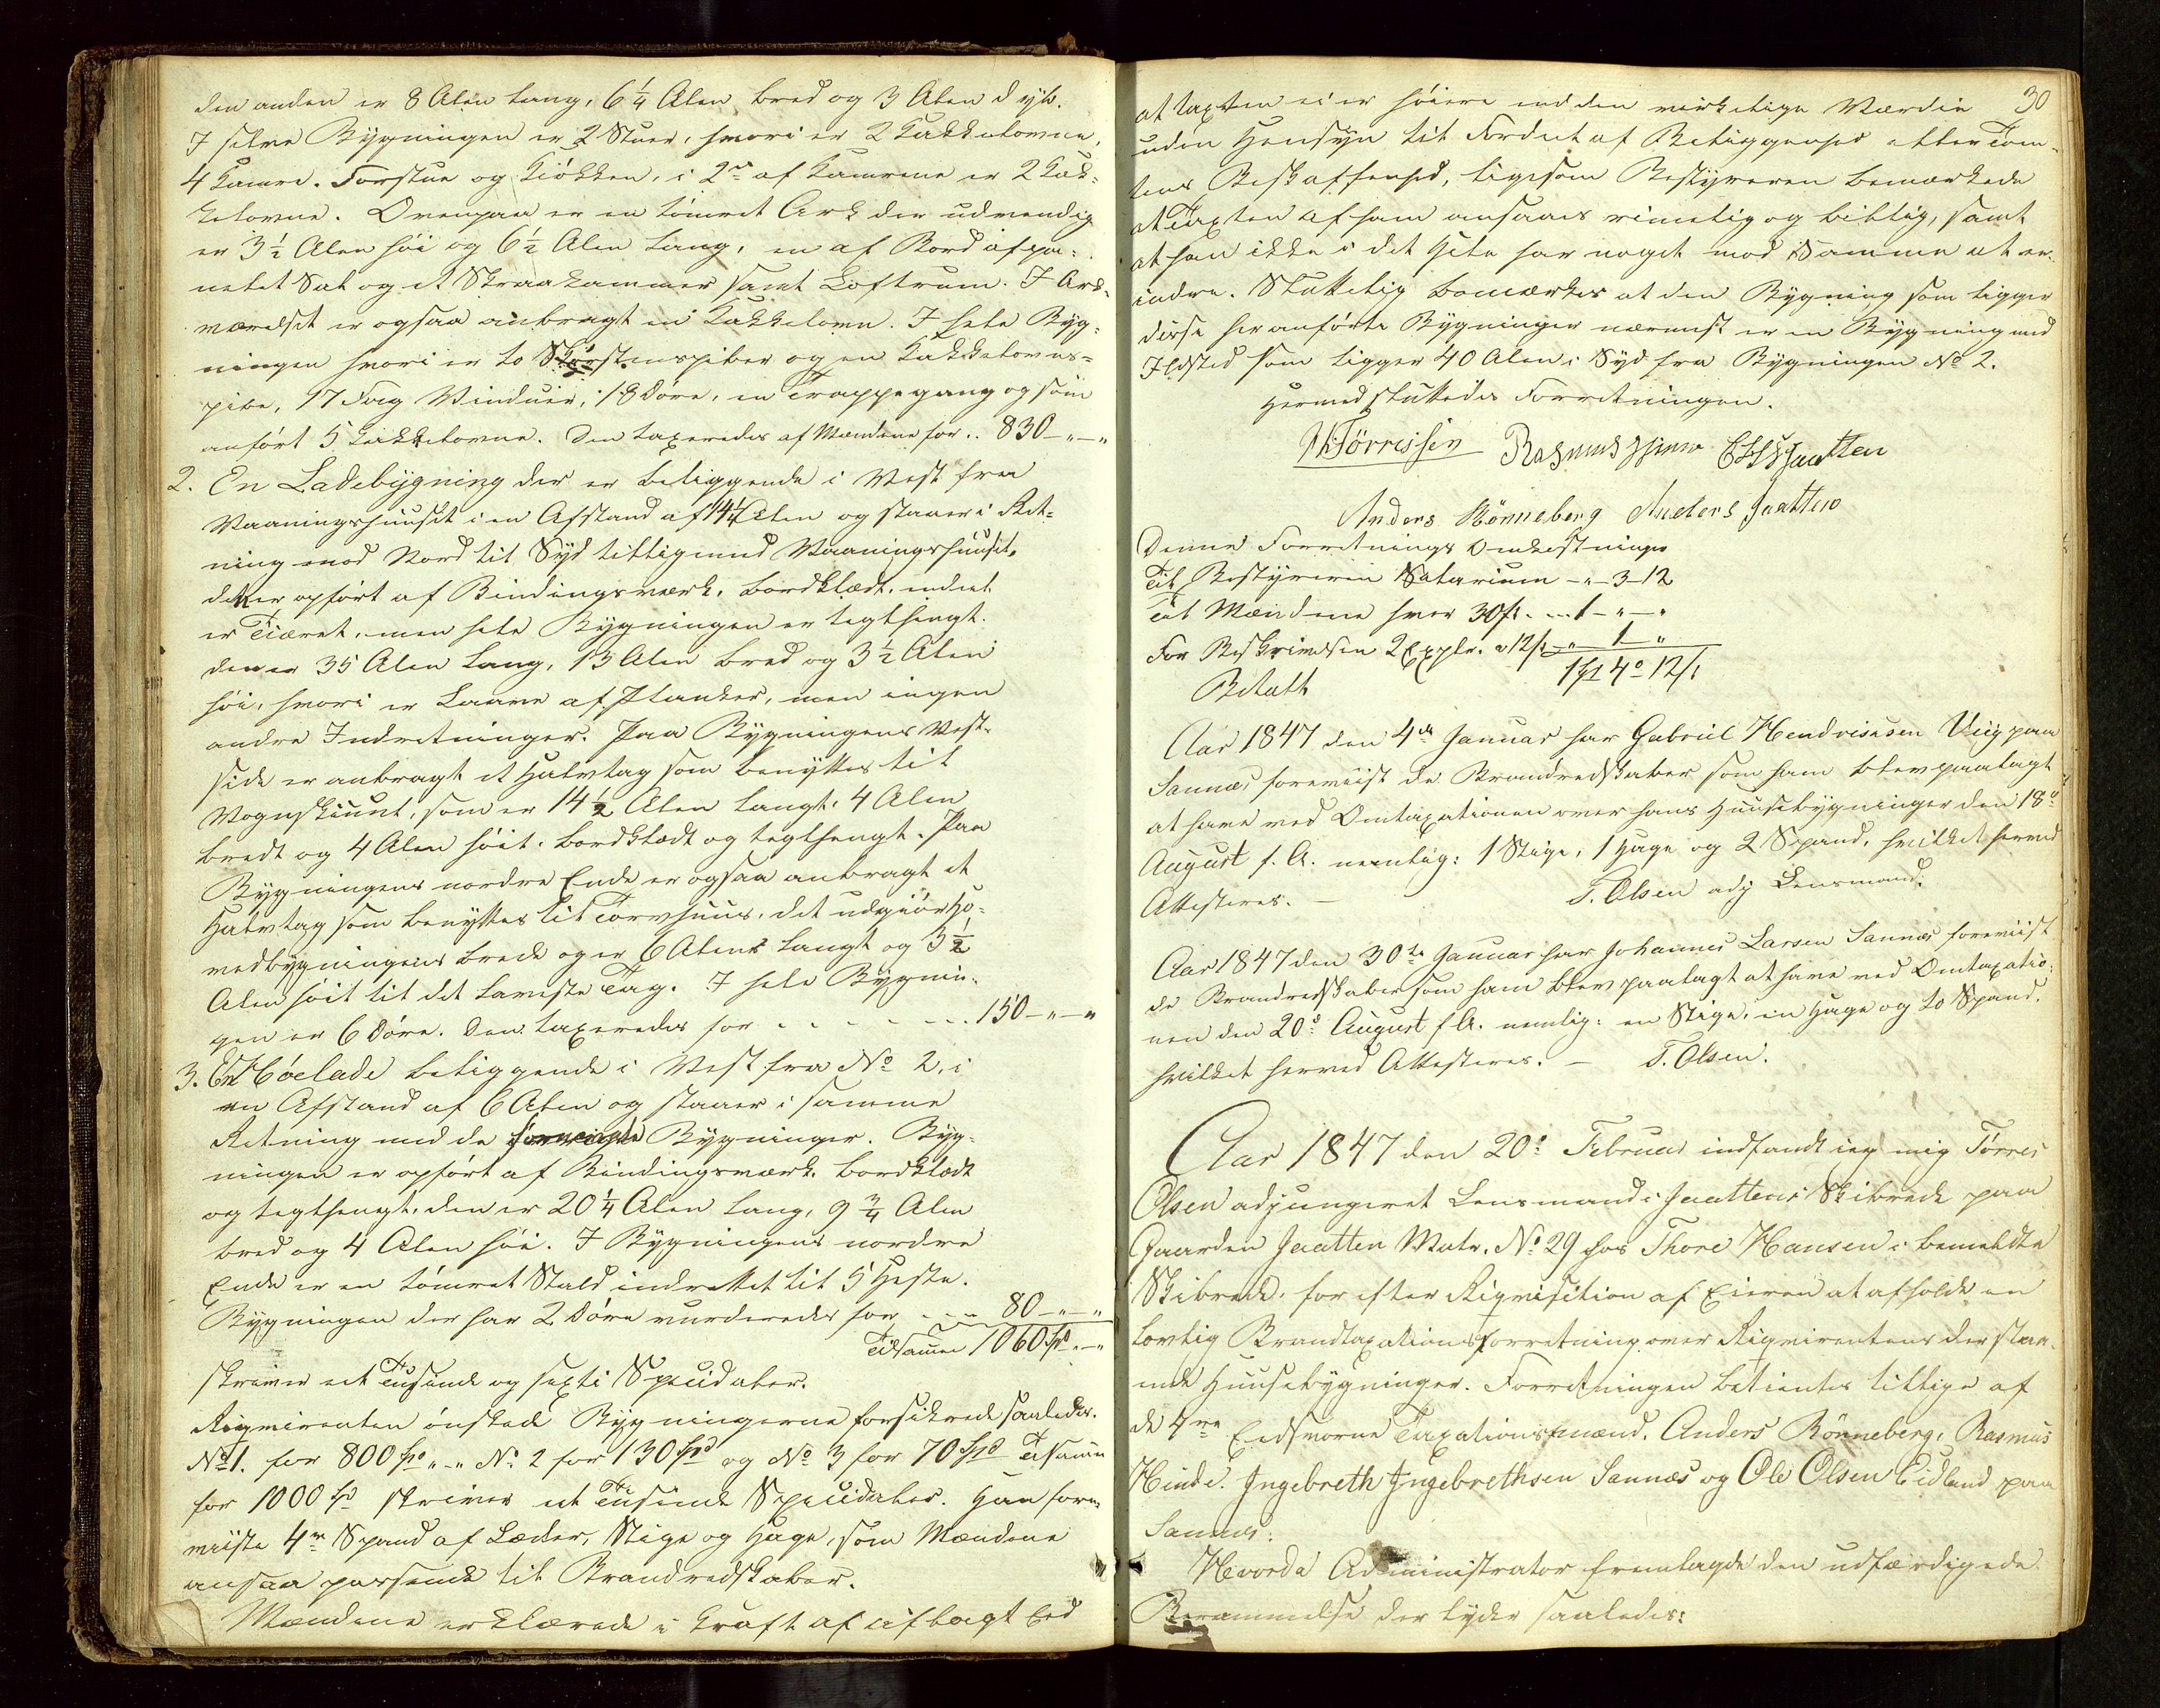 den anden er 8 Alen lang, 6 1/4 Alen bred og 3 Alen dyb.
I selve Bygningen er 2 Stuer, hvori er 2 Kakkelovne,
4 Kamre. Forstue og Kiökken, i 2de af Kamrene er 2 Kak-
kelovne. Ovenpaa er en tömret Ark der udvendig
er 3 1/2 Alen höi og 6 1/2 Alen lang, en af Bord afpa-
nelet Sal og et Skraakammer samt Loftrum. I Ark-
værelset er ogsaa anbragt en Kakkelovn. I hele Byg-
ningen hvori er to Skorstenspiber og en Kakkelovns-
pibe, 17 Fag Vinduer, 18 Döre, en Trappegang og som
anfört 5 Kakkelovne. Den taxeredes af Mændene for .. 830 – „ – „
2. En Ladebygning der er beliggende i Vest fra
Vaaningshuuset i en Afstand af 14 1/4 Alen og staaer i Ret-
ning mod Nord til Syd tilligemed Vaaningshuuset,
den er opfört af Bindingsværk, bordklædt, endeel
er Tiæret, men hele Bygningen er teglhengt.
den er 35 Alen lang, 13 Alen bred og 3 1/2 Alen
höi, hvori er Laave af Planker, men ingen
andre Indretninger. Paa Bygningens Vest-
side er anbragt et Halvtag som benyttes til
Vognskiuul, som er 14 1/2 Alen langt, 4 Alen
bredt og 4 Alen höit, bordklædt og teglhengt. Paa
Bygningens nordre Ende er ogsaa anbragt et
Halvtag som benyttes til Torvhuus, det udgiör Ho-
vedbygningens brede og er 6 Alen langt og 3 1/2
Alen höit til det laveste Tag. I hele Bygnin-
gen er 6 Döre. Den taxeredes for - - - - - 150 – „ – „
3. En Höelade beliggende i Vest fra No 2, i
en Afstand af 6 Alen og staaer i samme
Retning med de forrige Bygninger. Byg-
ningen er opfört af Bindingsværk, bordklædt
og teglhengt, den er 20 1/4 Alen lang, 9 3/4 Alen
bred og 4 Alen höi. I Bygningens nordre
Ende er en tömret Stald indrettet til 5 Heste.
Bygningen der har 2 Döre vurderedes for - - - 80 – „ – „
Tilsamen 1060 Spd „ – „
skriver eet Tusinde og sexti Speciedaler.
Reqvirenten önskede Bygningerne forsikrede saaledes.
No 1. for 800 Spd „ – „ No 2 for 130 Spd og No 3 for 70 Spd Tilsamen
for 1000 Spd skriver et Tusinde Speciedaler. Han fore-
viiste 4re Spand af Læder, Stige og Hage, som Mændene
ansaa passende til Brandredskaber.
Mændene erklærede i Kraft af aflagt Eed
30
at taxten ei er höiere end den virkelige Værdie
uden Hensyn til Fordeel af Beliggenhed eller Tom-
tens Beskaffenhed, ligesom Bestyreren bemærkede
at Taxten af ham ansaaes rimelig og billig, samt
at han ikke i det Hele har noget mod Samme at er-
indre. Sluttelig bemærkes at den Bygning som ligger
disse her anförte Bygninger nærmest er en Bygning med
Ildsted som ligger 40 Alen i Syd fra Bygningen No 2.
Hermed sluttedes Forretningen.
Törressen Rasmus Hinna Jaatten
Anders Rönneberg Anders Jaatten
Denne Forretnings Omkostninger
Til Bestyreren Salarium – „ – 3 – 12
Til Mændene hver 30 ß. ... 1 – „ – „
For Beskrivelsen 2 Explr. a 12 ß – „ 1 „
1 Spd 4 o 12 ß
Betalt
Aar 1847 den 4de Januar har Gabriel Hendricksen Viig paa
Sannæs foreviist de Brandredskaber som ham blev paalagt
at have ved Omtaxationen over hans Huusebygninger den 18de
August f. A. nemlig: 1 Stige, 1 Hage og 2 Spand, hvilket herved
Attesteres. – T. Olsen adj Lensmand.
Aar 1847 den 30te Januar har Johannes Larsen Sannæs foreviist
de Brandredskaber som ham blev paalagt at have ved Omtaxatio-
nen den 20de August f A. nemlig: en Stige, en Hage og to Spand.
hvilket herved Attesteres. – T. Olsen.
Aar 1847 den 20de Februar indfandt ieg mig Törres
Olsen adjungeret Lensmand i Jaattens Skibrede paa
Gaarden Jaatten Matr. No 29 hos Thore Hansen i bemeldte
Skibrede, for efter Reqvisition af Eieren at afholde en
lovlig Brandtaxationsforretning over Reqvirentens der staa-
ende Huusebygninger. Forretningen betientes tillige af
de 4re Eedsvorne Taxationsmænd, Anders Rönneberg, Rasmus
Hinde. Ingebreth Ingebrethsen Sannæs og Ole Olsen Eidland paa
Sannæs.
Hvorda Administrator fremlagde den udfærdigede
Berammelse der lyder saaledes: